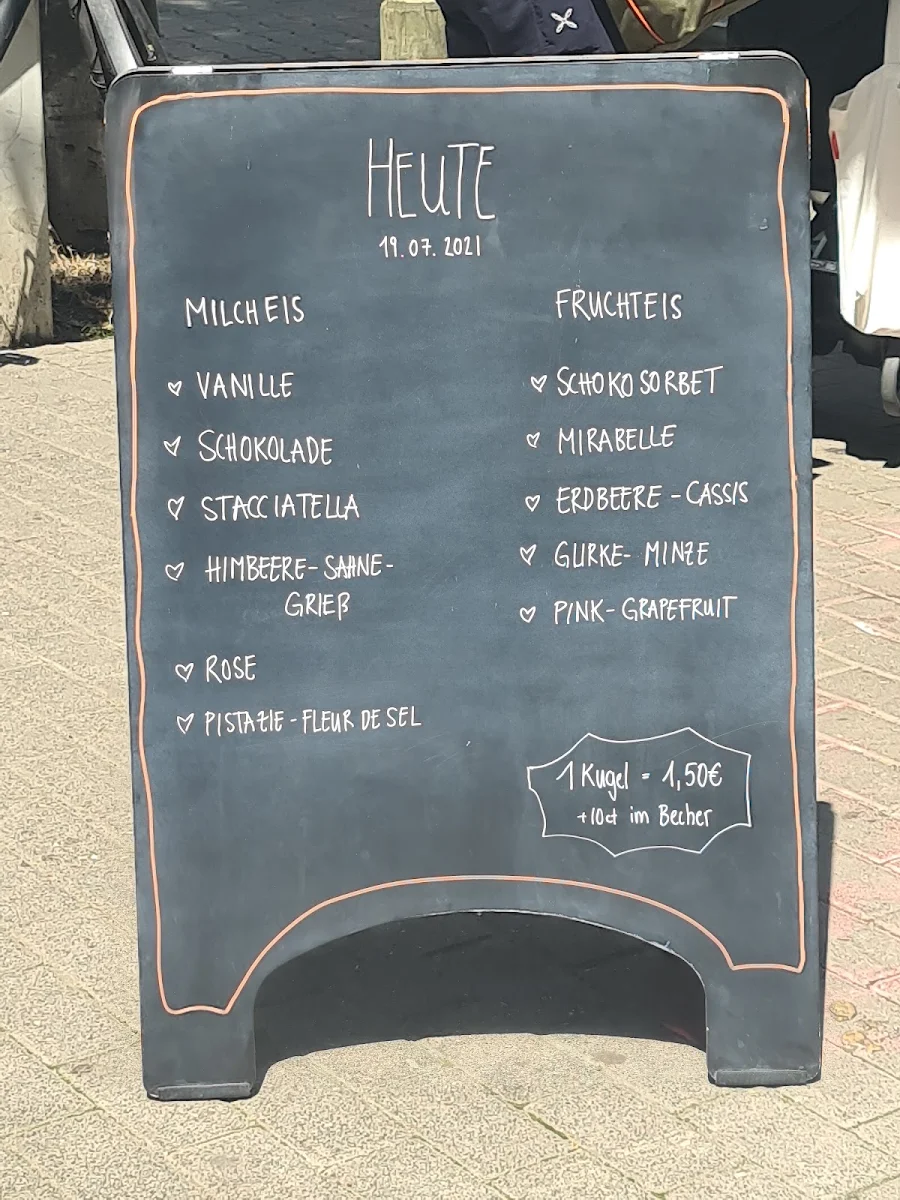 HEUTE
19.07.2021
MILCHEIS
♡ VANILLE
♡ SCHOKOLADE
♡ STACCIATELLA
♡ HIMBEERE-SAHNE-
GRIEß
♡ ROSE
♡ PISTAZIE-FLEUR DE SEL
FRUCHTEIS
♡ SCHOKO SORBET
♡ MIRABELLE
♡ ERDBEERE-CASSIS
♡ GURKE-MINZE
♡ PINK-GRAPEFRUIT
1 Kugel = 1,50€
+10ct im Becher